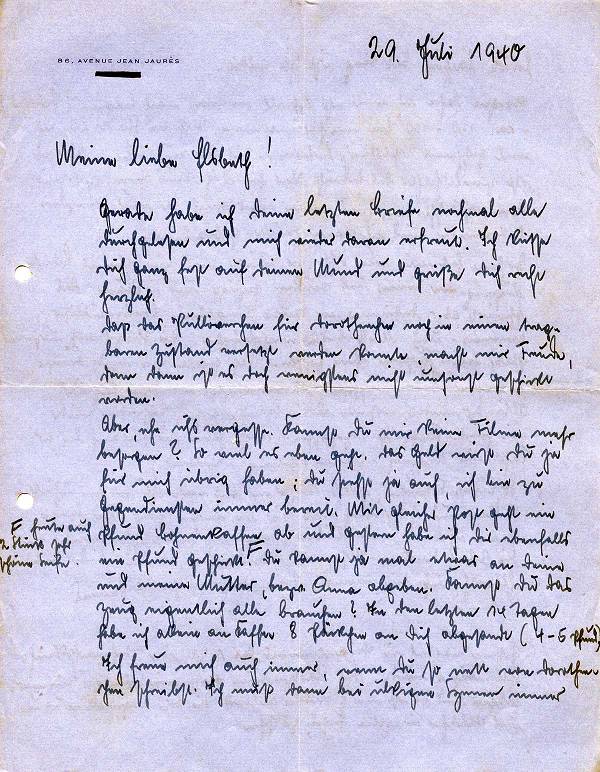 29. Juli 1940
86, AVENUE JEAN JAURÈS
Meine liebe Elsbeth!
Gerade habe ich Deine letzten Briefe nochmal alle
durchgelesen und mich wieder daran erfreut. Ich küsse
Dich ganz fest auf Deinen Mund und grüße Dich recht
herzlich.
Daß das Pulliverchen für Dorothenchen noch in einen trag-
baren Zustand versetzt werden konnte, macht mir Freude,
denn dann ist es doch wenigstens nicht umsonst geschickt
worden.
Aber, ehe ich's vergesse. Kannst Du mir keine Filme mehr
besorgen? So viel es eben geht. Das Geld wirst Du ja
für mich übrig haben; Du siehst ja auch, ich bin zu
Gegendiensten immer bereit. Mit gleicher Post geht ein
Pfund Bohnenkaffee ab und gestern habe ich Dir ebenfalls
F heute auch
2 Stück sehr
schöne Seife.
ein Pfund geschickt. F Du kannst ja mal etwas an Deine
und meine Mutter, bezw. Anna abgeben. Kannst Du das
Zeug eigentlich alle brauchen? In den letzten 14 Tagen
habe ich allein an Kaffee 8 Päckchen an Dich abgesandt (4-5 Pfund)
Ich freue mich auch immer, wenn Du so nett von Dorothen-
chen schreibst. Ich muß dann bei ulkigen Szenen immer